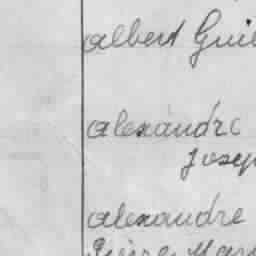 albert Guil
alexandre
Josep
alexandre
Pierre Mar